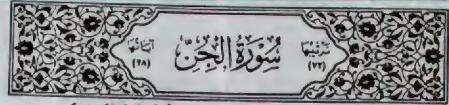 ترتيبها (٧٢) سُورَةُ الجِنِّ آياتها (٢٨)